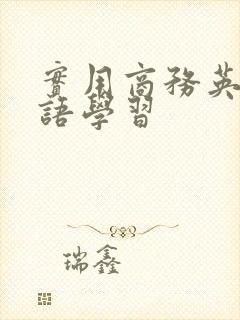 實用商務英
語學習
瑞鑫